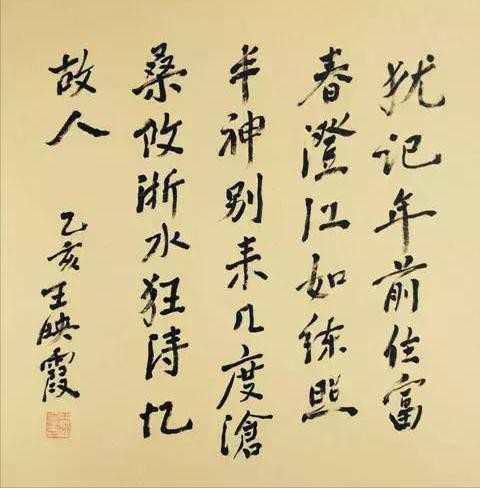 犹记年前住富
春澄江如练照
丰神别来几度滄
桑改浙水狂涛忆
故人
乙亥王映霞